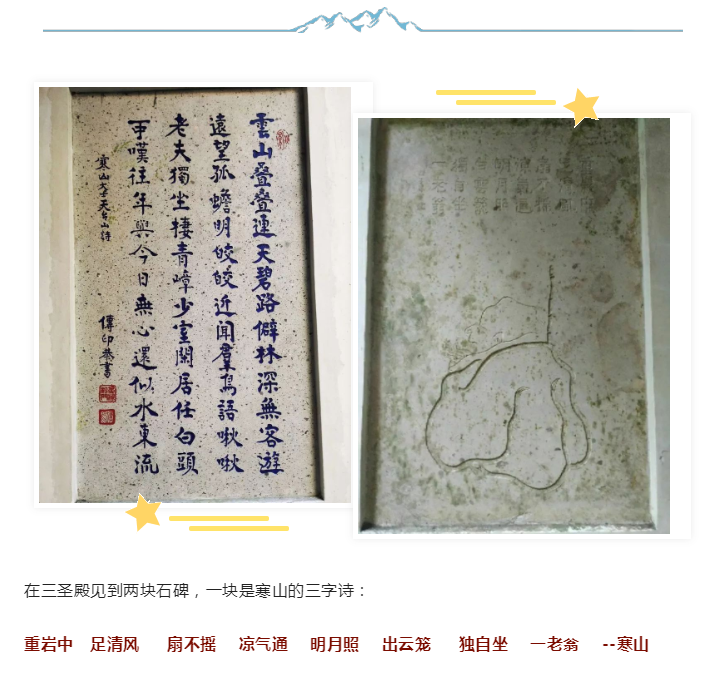 雲山疊疊連天碧路僻林深無客遊
遠望孤蟾明皎皎近聞羣鳥語啾啾
老夫獨坐棲青嶂少室閑居任白頭
可嘆往年與今日無心還似水東流
寒山大士天台山詩
傳印恭書
明月照
獨自坐
一老翁
在三圣殿见到两块石碑，一块是寒山的三字诗：
重岩中 足清风 扇不摇 凉气通 明月照 出云笼 独自坐 一老翁 --寒山